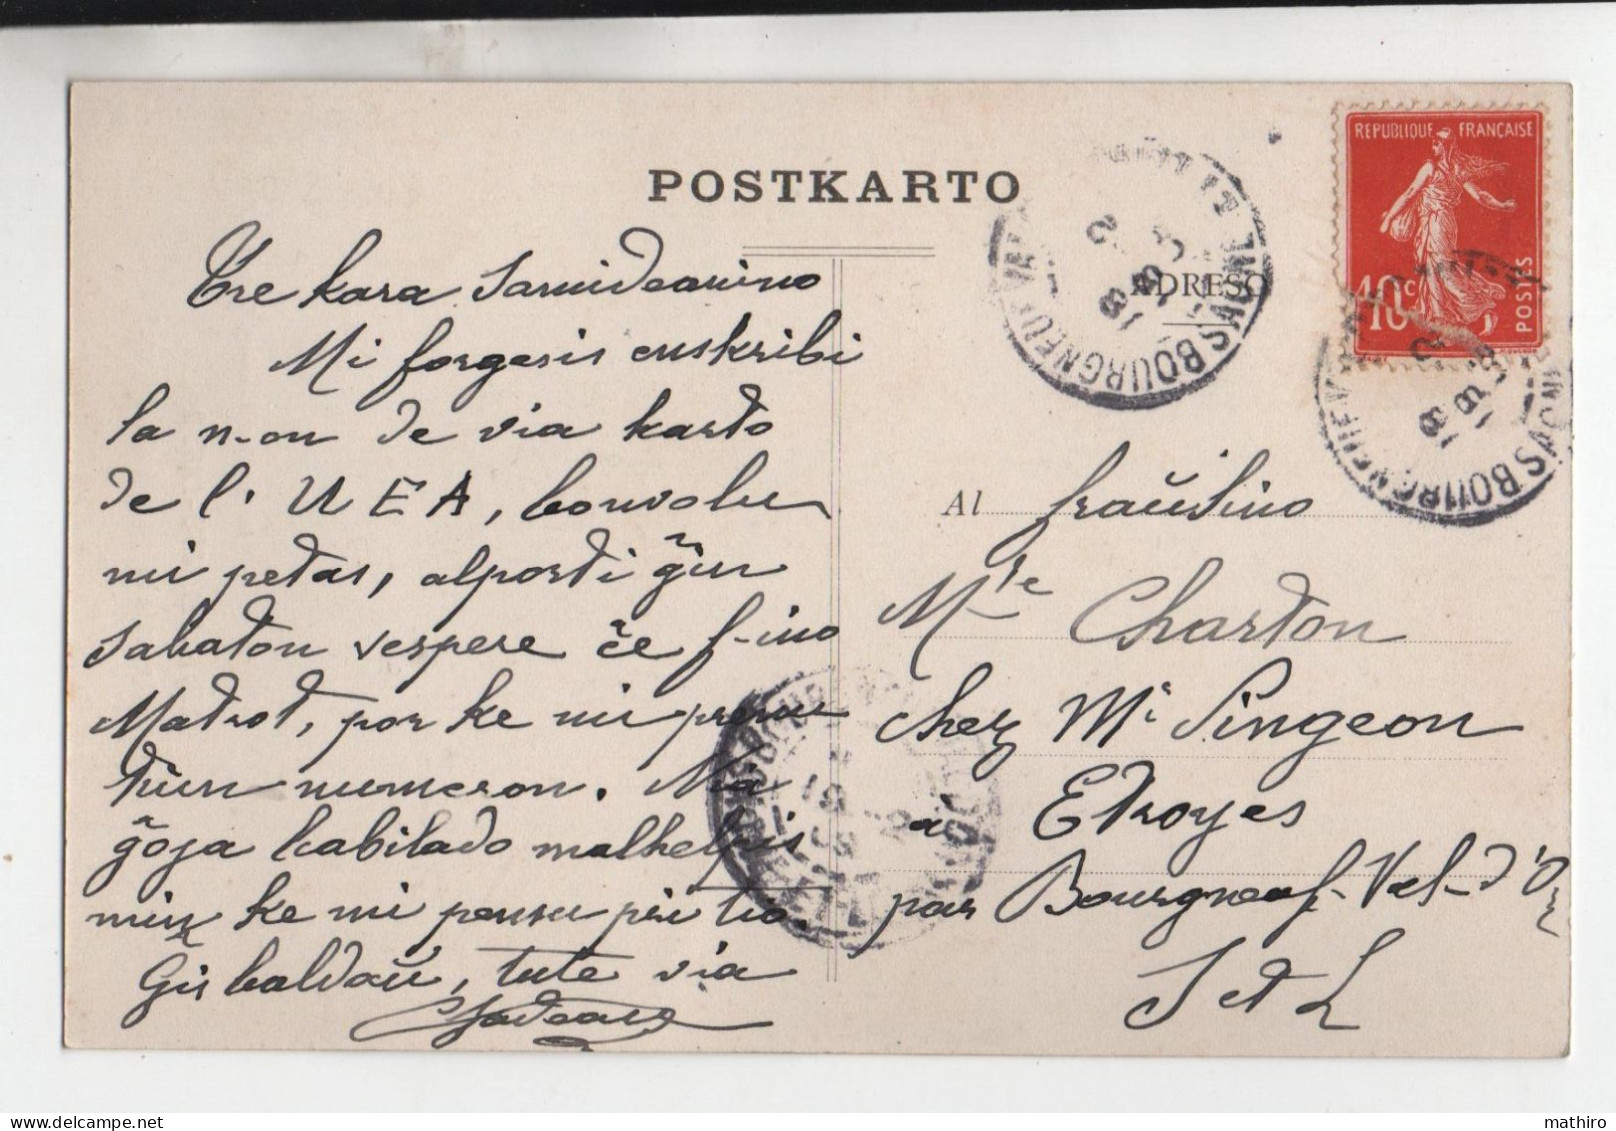 POSTKARTO
ADRESO
REPUBLIQUE FRANÇAISE
10c
POSTES
Tre kara Samideanino
Mi forgesis enskribi
la n-on de via karto
de l' UEA, bonvolu
mi petas, alporti ĝin
sabaton vespere ĉe f-ino
Matrot, por ke mi prenu
tiun numeron. Ma
ĝoja babilado malhelpis
min ke mi pensu pri tio.
Ĝis baldaŭ, tute via
Al fraŭlino
Mlle Charton
chez Mr Singeon
à Etroyes
par Bourgneuf-Val-d'Or
S et L
BOURGNEUF VAL
S BOURGNEUF
mathiro